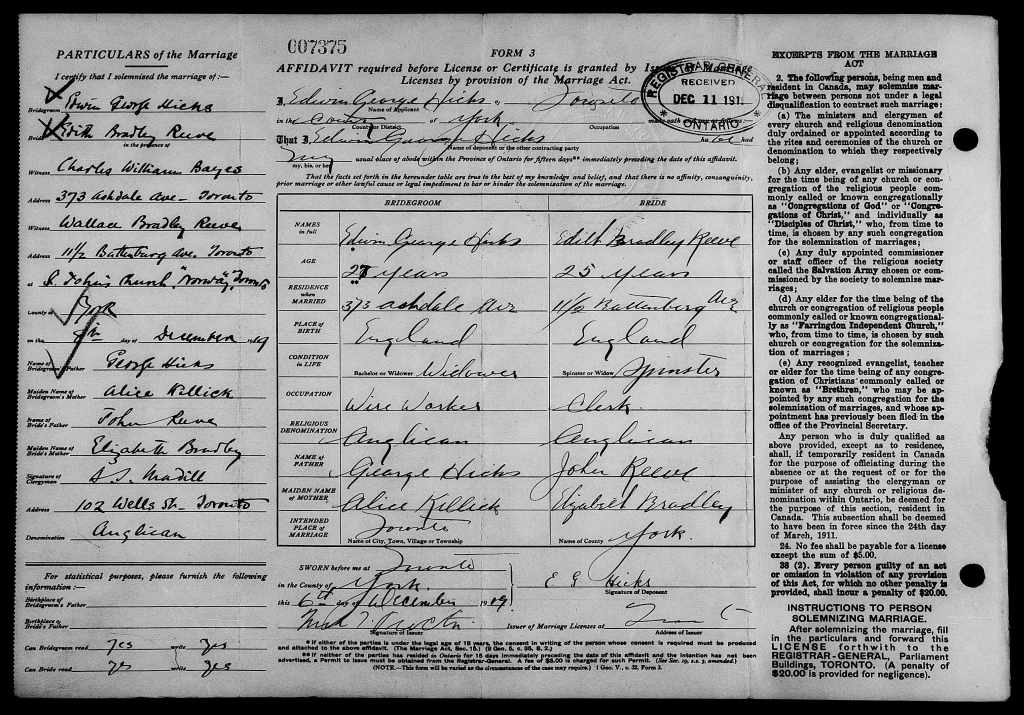 007375
PARTICULARS of the Marriage
I certify that I solemnised the marriage of:—
Bridegroom Edwin George Hicks
Bride Edith Bradley Reeve
in the presence of
Witness Charles William Bayes
Address 373 Ashdale Ave – Toronto
Witness Wallace Bradley Reeve
Address 11½ Battenburg Ave. Toronto
at S. John's Church "Norway", Toronto
County of York
on the day of December 1919
Name of Bridegroom's Father George Hicks
Maiden Name of Bridegroom's Mother Alice Killick
Name of Bride's Father John Reeve
Maiden Name of Bride's Mother Elizabeth Bradley
Signature of Clergyman Madill
Address 102 Wells St. Toronto
Denomination Anglican
For statistical purposes, please furnish the following information:—
Birthplace of Bridegroom's Father
Birthplace of Bride's Father
Can Bridegroom read yes write yes
Can Bride read yes write yes
FORM 3
AFFIDAVIT required before License or Certificate is granted by Issuer of Marriage
Licenses by provision of the Marriage Act.
REGISTRAR GENERAL
RECEIVED
DEC 11 191
ONTARIO
I, Edwin George Hicks Toronto
Name of Applicant
in the County of York
County or District Occupation make oath and say as follows:
That I Edwin George Hicks had
Name of deponent or the other contracting party
my usual place of abode within the Province of Ontario for fifteen days** immediately preceding the date of this affidavit.
my, his, or her
That the facts set forth in the hereunder table are true to the best of my knowledge and belief, and that there is no affinity, consanguinity,
prior marriage or other lawful cause or legal impediment to bar or hinder the solemnization of the marriage.
BRIDEGROOM BRIDE
NAMES in full Edwin George Hicks Edith Bradley Reeve
AGE 27 years 25 years
RESIDENCE when MARRIED 373 Ashdale Ave 11½ Battenberg Ave
PLACE OF BIRTH England England
CONDITION IN LIFE Bachelor or Widower Widower Spinster or Widow Spinster
OCCUPATION Wire Worker Clerk
RELIGIOUS DENOMINATION Anglican Anglican
NAME OF FATHER George Hicks John Reeve
MAIDEN NAME OF MOTHER Alice Killick Elizabeth Bradley
INTENDED PLACE OF MARRIAGE Toronto York.
Name of City, Town, Village or Township Name of County
SWORN before me at Toronto
in the County of York E G Hicks
Signature of Deponent
this 6th day of December 1919
Issuer of Marriage Licenses at
Signature of Issuer Address of Issuer
* If either of the parties is under the legal age of 18 years, the consent in writing of the person whose consent is required must be produced
and attached to the above affidavit. (The Marriage Act, Sec. 15.) (9 Geo. 5, c. 35, S. 2.)
** If neither of the parties has resided in Ontario for 15 days immediately preceding the date of this affidavit and the intention has not been
advertised, a Permit to Issue must be obtained from the Registrar-General. A fee of $5.00 is charged for such Permit. (See Sec. 19, s.s. 3, amended.)
(NOTE.—This form will be varied as the circumstances of the case may require.) 1 Geo. V., c. 32, Form 3.
EXCERPTS FROM THE MARRIAGE
ACT
2. The following persons, being men and
resident in Canada, may solemnize mar-
riage between persons not under a legal
disqualification to contract such marriage:
(a) The ministers and clergymen of
every church and religious denomination
duly ordained or appointed according to
the rites and ceremonies of the church or
denomination to which they respectively
belong;
(b) Any elder, evangelist or missionary
for the time being of any church or con-
gregation of the religious people com-
monly called or known congregationally
as "Congregations of God" or "Congre-
gations of Christ," and individually as
"Disciples of Christ," who, from time to
time, is chosen by any such congregation
for the solemnization of marriages;
(c) Any duly appointed commissioner
or staff officer of the religious society
called the Salvation Army chosen or com-
missioned by the society to solemnize mar-
riages;
(d) Any elder for the time being of the
church or congregation of religious people
commonly called or known congregational-
ly as "Farringdon Independent Church,"
who, from time to time, is chosen by such
church or congregation for the solemniza-
tion of marriages;
(e) Any recognized evangelist, teacher
or elder for the time being of any congre-
gation of Christians commonly called or
known as "Brethren," who may be ap-
pointed by any such congregation for the
solemnization of marriages, and whose ap-
pointment has previously been filed in the
office of the Provincial Secretary.
Any person who is duly qualified as
above provided, except as to residence,
shall, if temporarily resident in Canada
for the purpose of officiating during the
absence or at the request of or for the
purpose of assisting the clergyman or
minister of any church or religious de-
nomination within Ontario, be deemed for
the purpose of this section, resident in
Canada. This subsection shall be deemed
to have been in force since the 24th day
of March, 1911.
24. No fee shall be payable for a license
except the sum of $5.00.
38 (2). Every person guilty of an act
or omission in violation of any provision
of this Act, for which no other penalty is
provided, shall incur a penalty of $20.00.
INSTRUCTIONS TO PERSON
SOLEMNIZING MARRIAGE.
After solemnizing the marriage, fill
in the particulars and forward this
LICENSE forthwith to the
REGISTRAR-GENERAL, Parliament
Buildings, TORONTO. (A penalty of
$20.00 is provided for negligence).